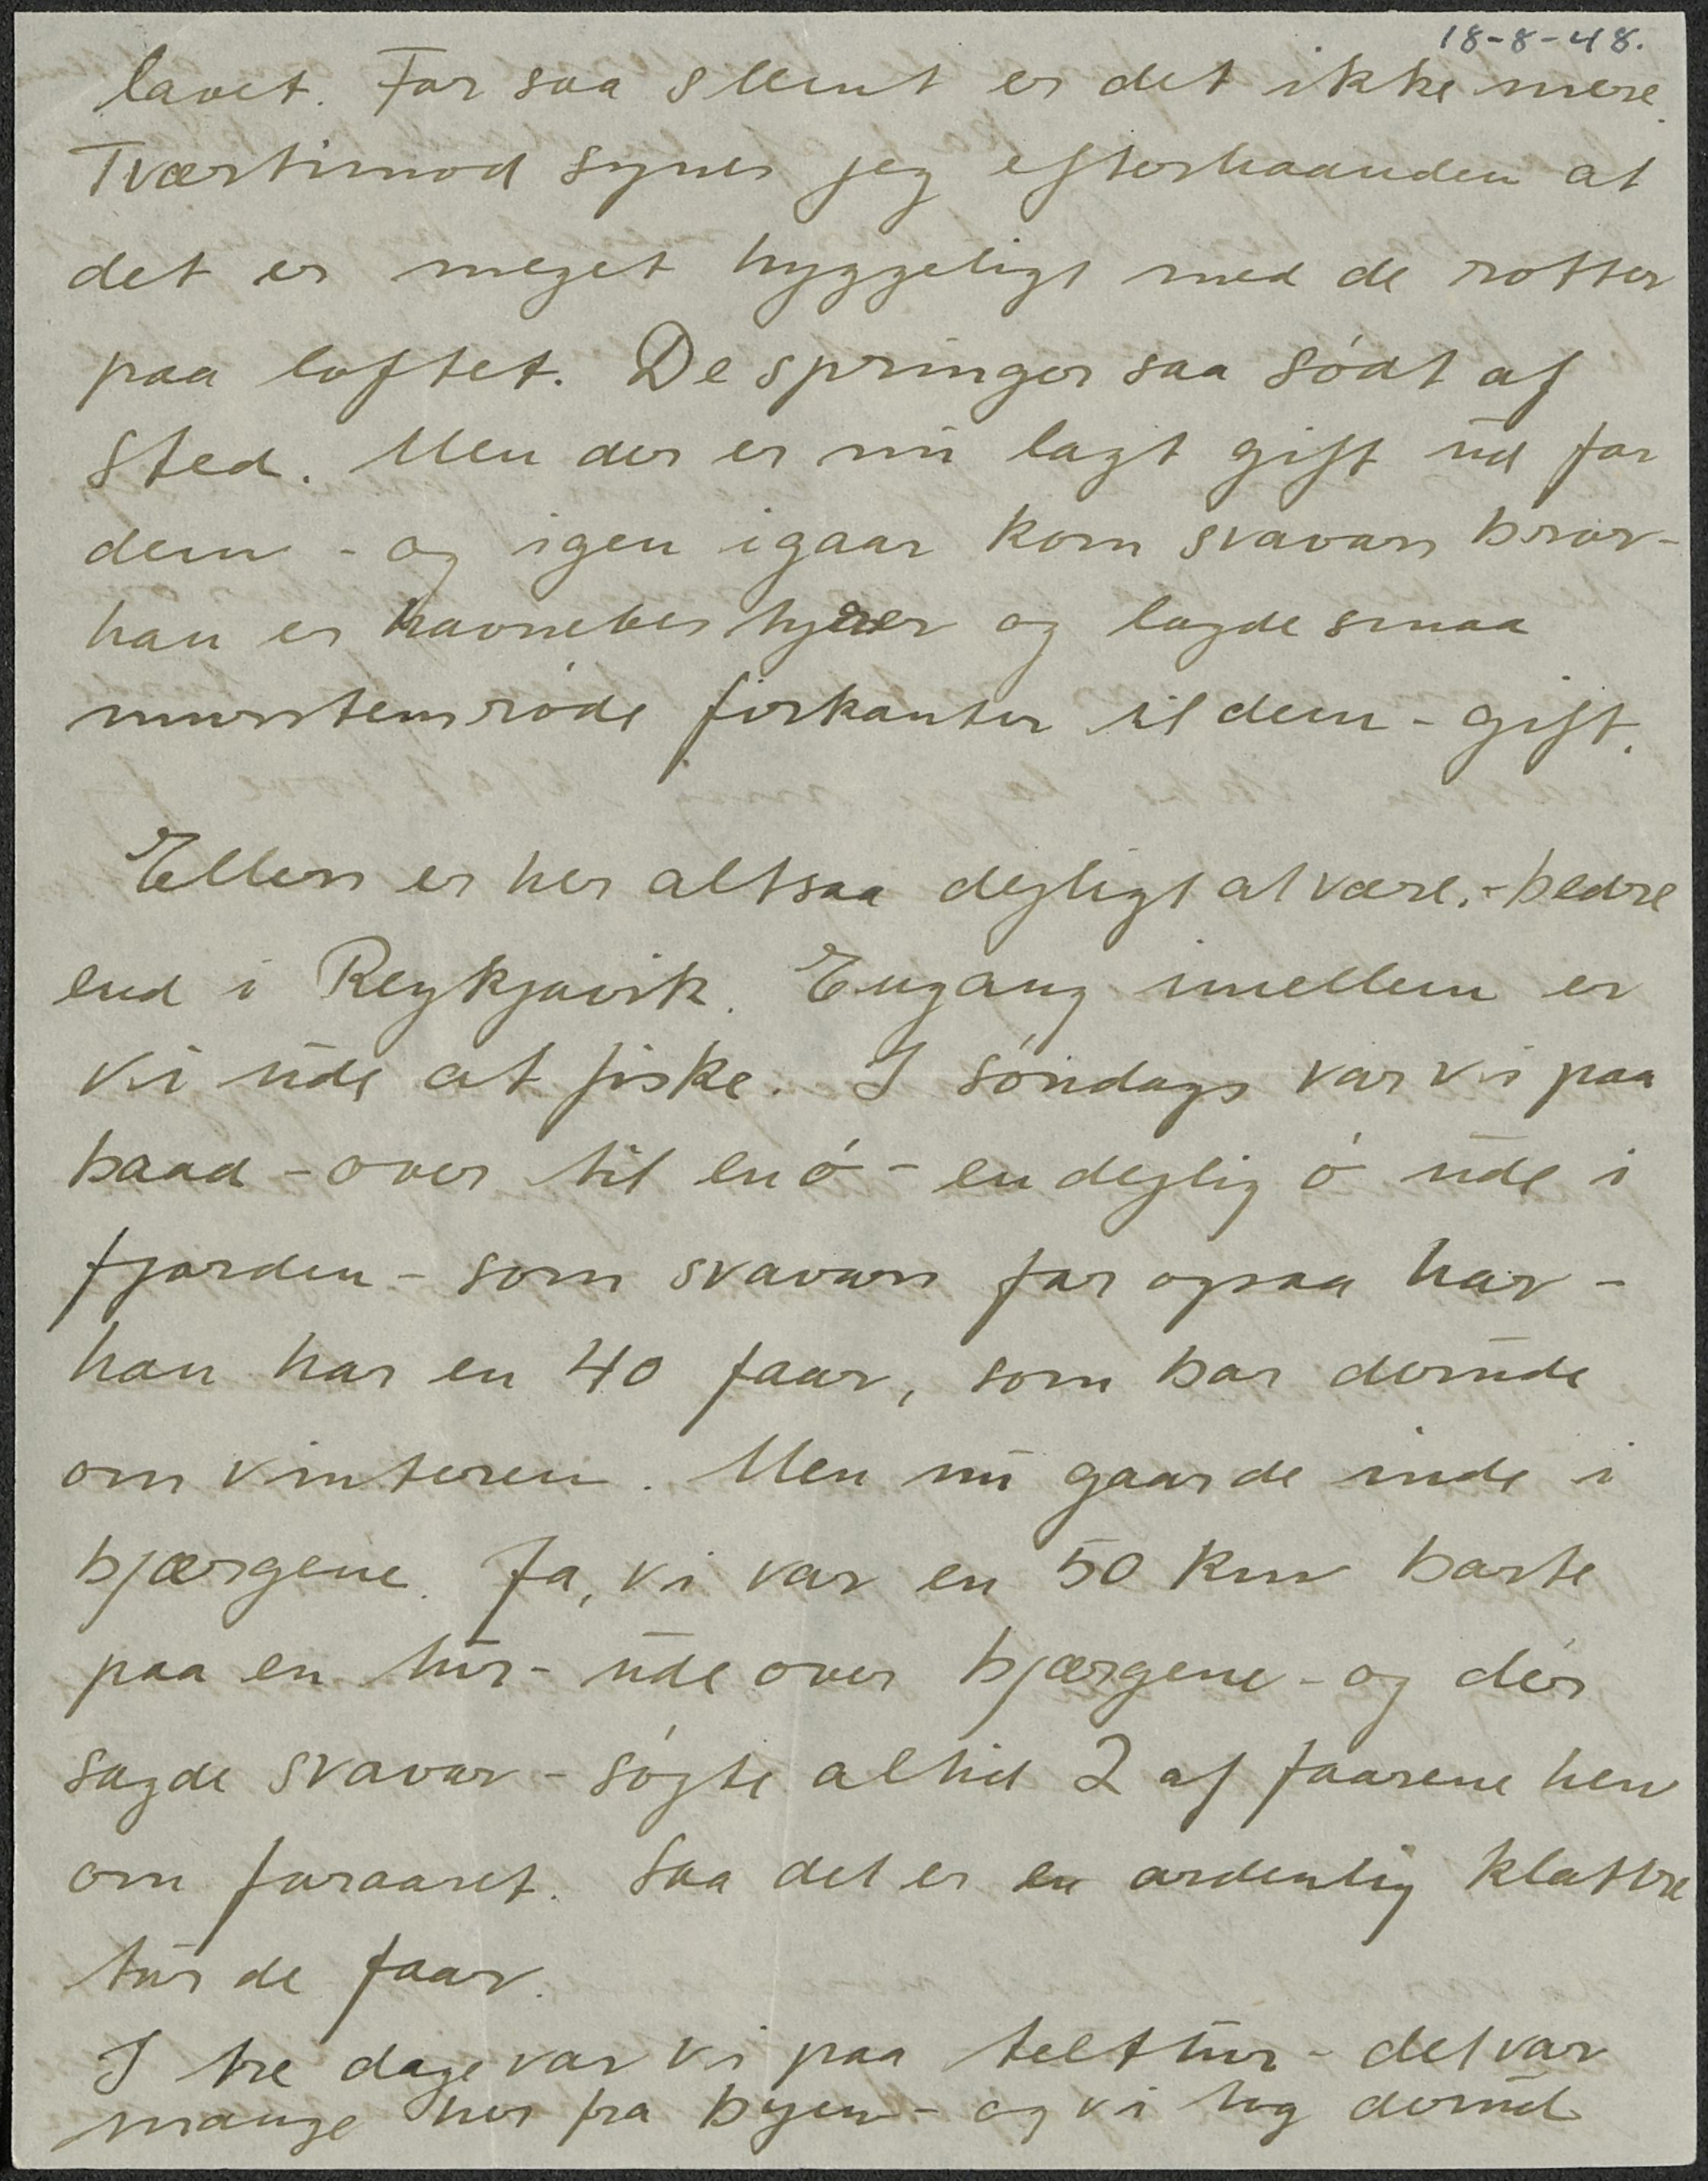 18-8-48.
lavet. For saa slemt er det ikke mere.
Tværtimod synes jeg efterhaanden at
det er meget hyggeligt med de rotter
paa loftet. De springer saa sødt af
sted. Men der er nu lagt gift ud for
dem - og igen igaar kom svavars bror -
han er havnebestyrer og lagde smaa
murstensrøde firkanter til dem - gift.
Ellers er her altsaa dejligt at være. - bedre
end i Reykjavik. Engang imellem er
vi ude at fiske. I søndags var vi paa
baad - over til en ø - en dejlig ø ude i
fjorden - som svavars far ogsaa har -
han har en 40 faar, som bor derude
om vinteren. Men nu gaar de inde i
bjærgene. Ja, vi var en 50 km borte
paa en tur - ude over bjærgene - og dér
sagde svavar - søgte altid 2 af faarene hen
om foraaret. Saa det er en ordentlig klattre
tur de faar.
I tre dage var vi paa telttur - det var
mange her fra byen - og vi tog derud